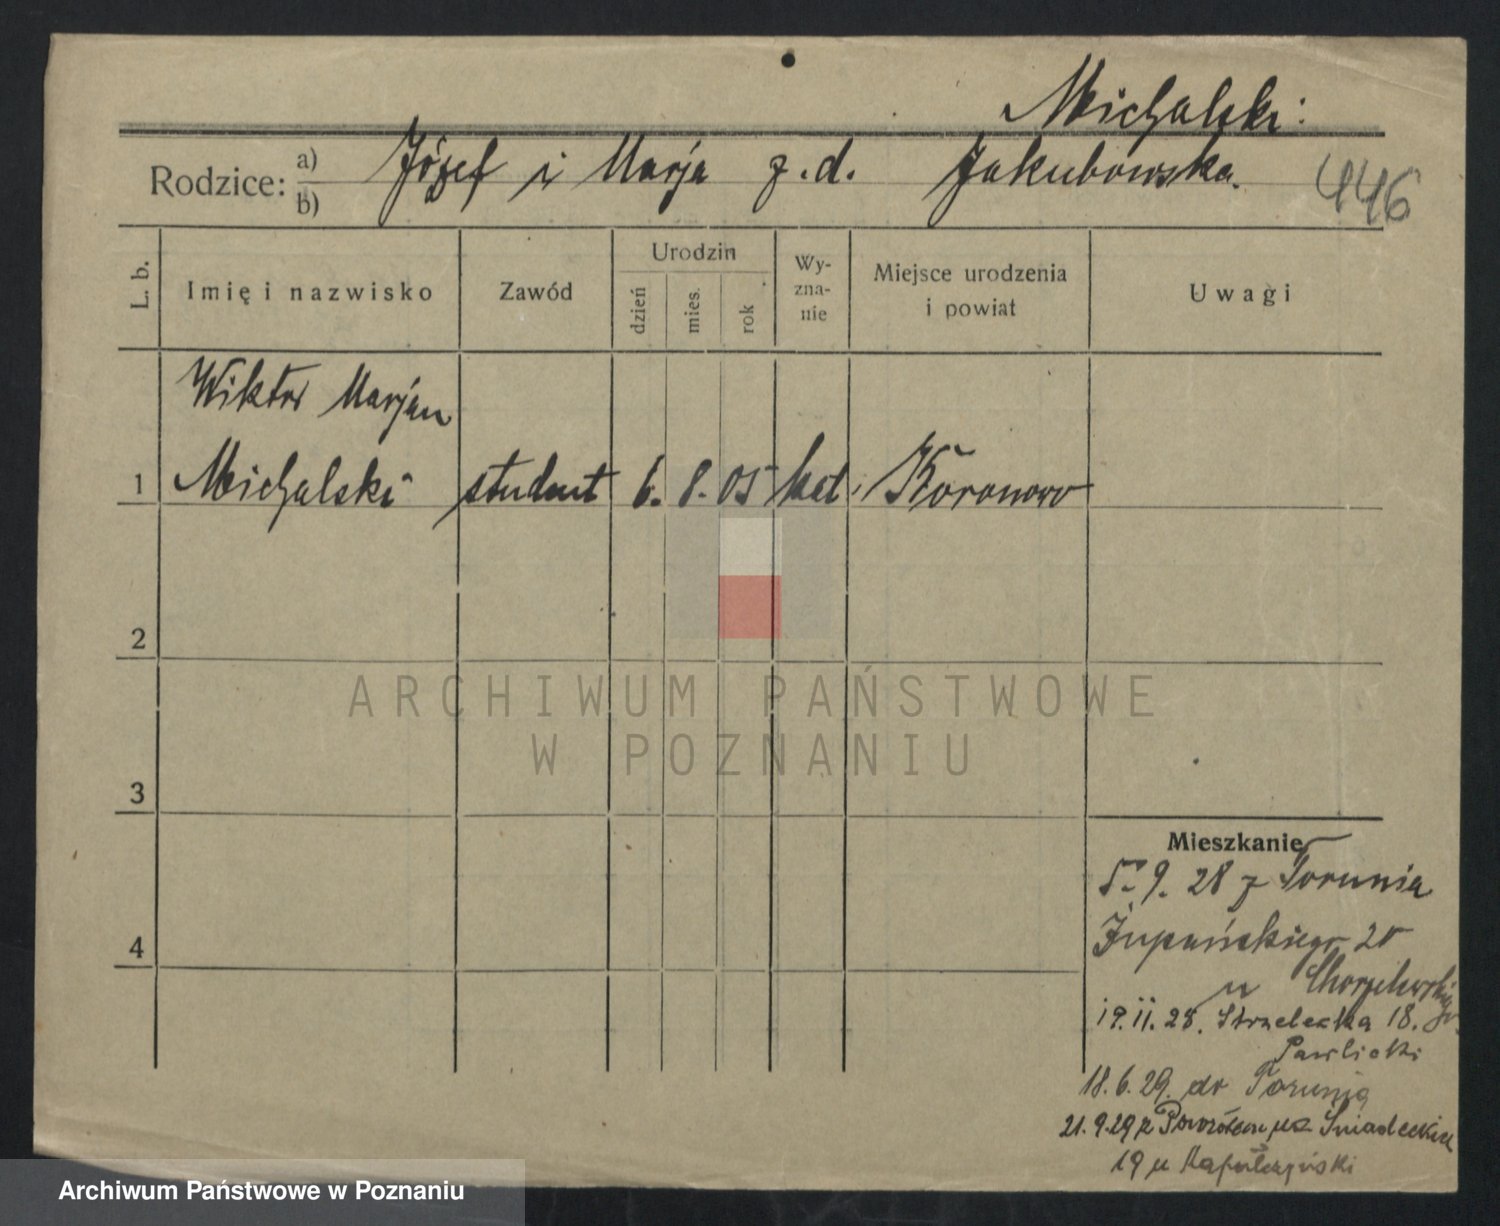 Michalski
Rodzice: a) b) Józef i Marja z.d. Jakubowska.
446
L. b.
Imię i nazwisko
Zawód
Urodzin
dzień
mies.
rok
Wy-
zna-
nie
Miejsce urodzenia
i powiat
Uwagi
Wiktor Marjan
1 Michalski student 6. 8. 05 kat. Koronowo
2
ARCHIWUM PAŃSTWOWE
W POZNANIU
3
Mieszkanie
5.9.28 z Torunia
4
Żupańskiego 20
u
19.11.28. Strzelecka 18.
Pawlicki
18.6.29. do Torunia
21.9.29 z Śniadeckich
19 u
Archiwum Państwowe w Poznaniu